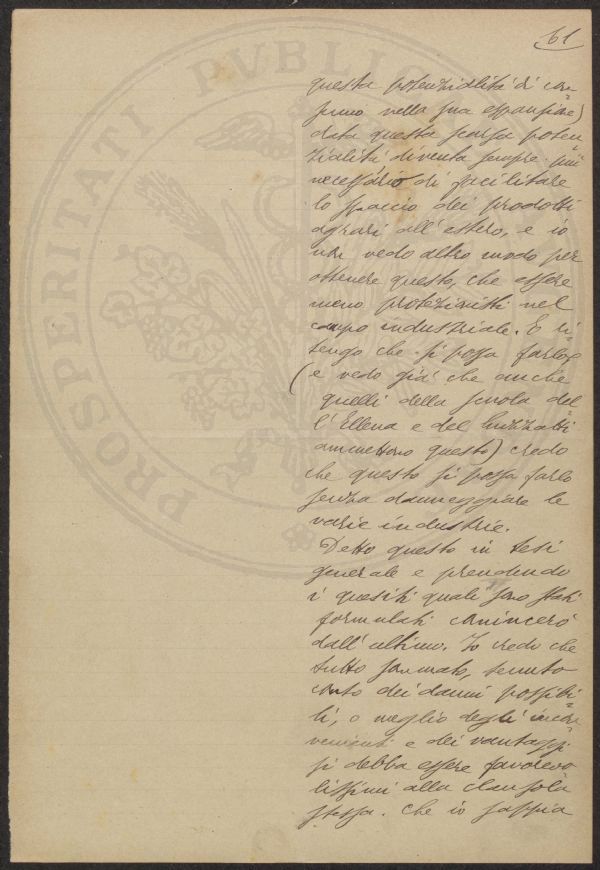 61
questa potenzialità di con=
sumo nella sua espansione)
data questa scarsa poten=
zialità diventa sempre più
necessario di facilitare
lo spaccio dei prodotti
agrari all'estero, e io
non vedo altro modo per
ottenere questo, che essere
meno protezionisti nel
campo industriale. E ri=
tengo che si possa farlo
(e vedo già che anche
quelli della scuola del=
l'Ellena e del Luzzatti
ammettono questo) credo
che questo si possa farlo
senza danneggiare le
varie industrie.
Detto questo in tesi
generale e prendendo
i quesiti quali sono stati
formulati comincerò
dall'ultimo. Io credo che
tutto sommato, tenuto
conto dei danni possibi=
li, o meglio degli incon=
venienti e dei vantaggi
si debba essere favorevo=
lissimi alla clausola
stessa. Che io sappia
PROSPERITATI PVBLIC